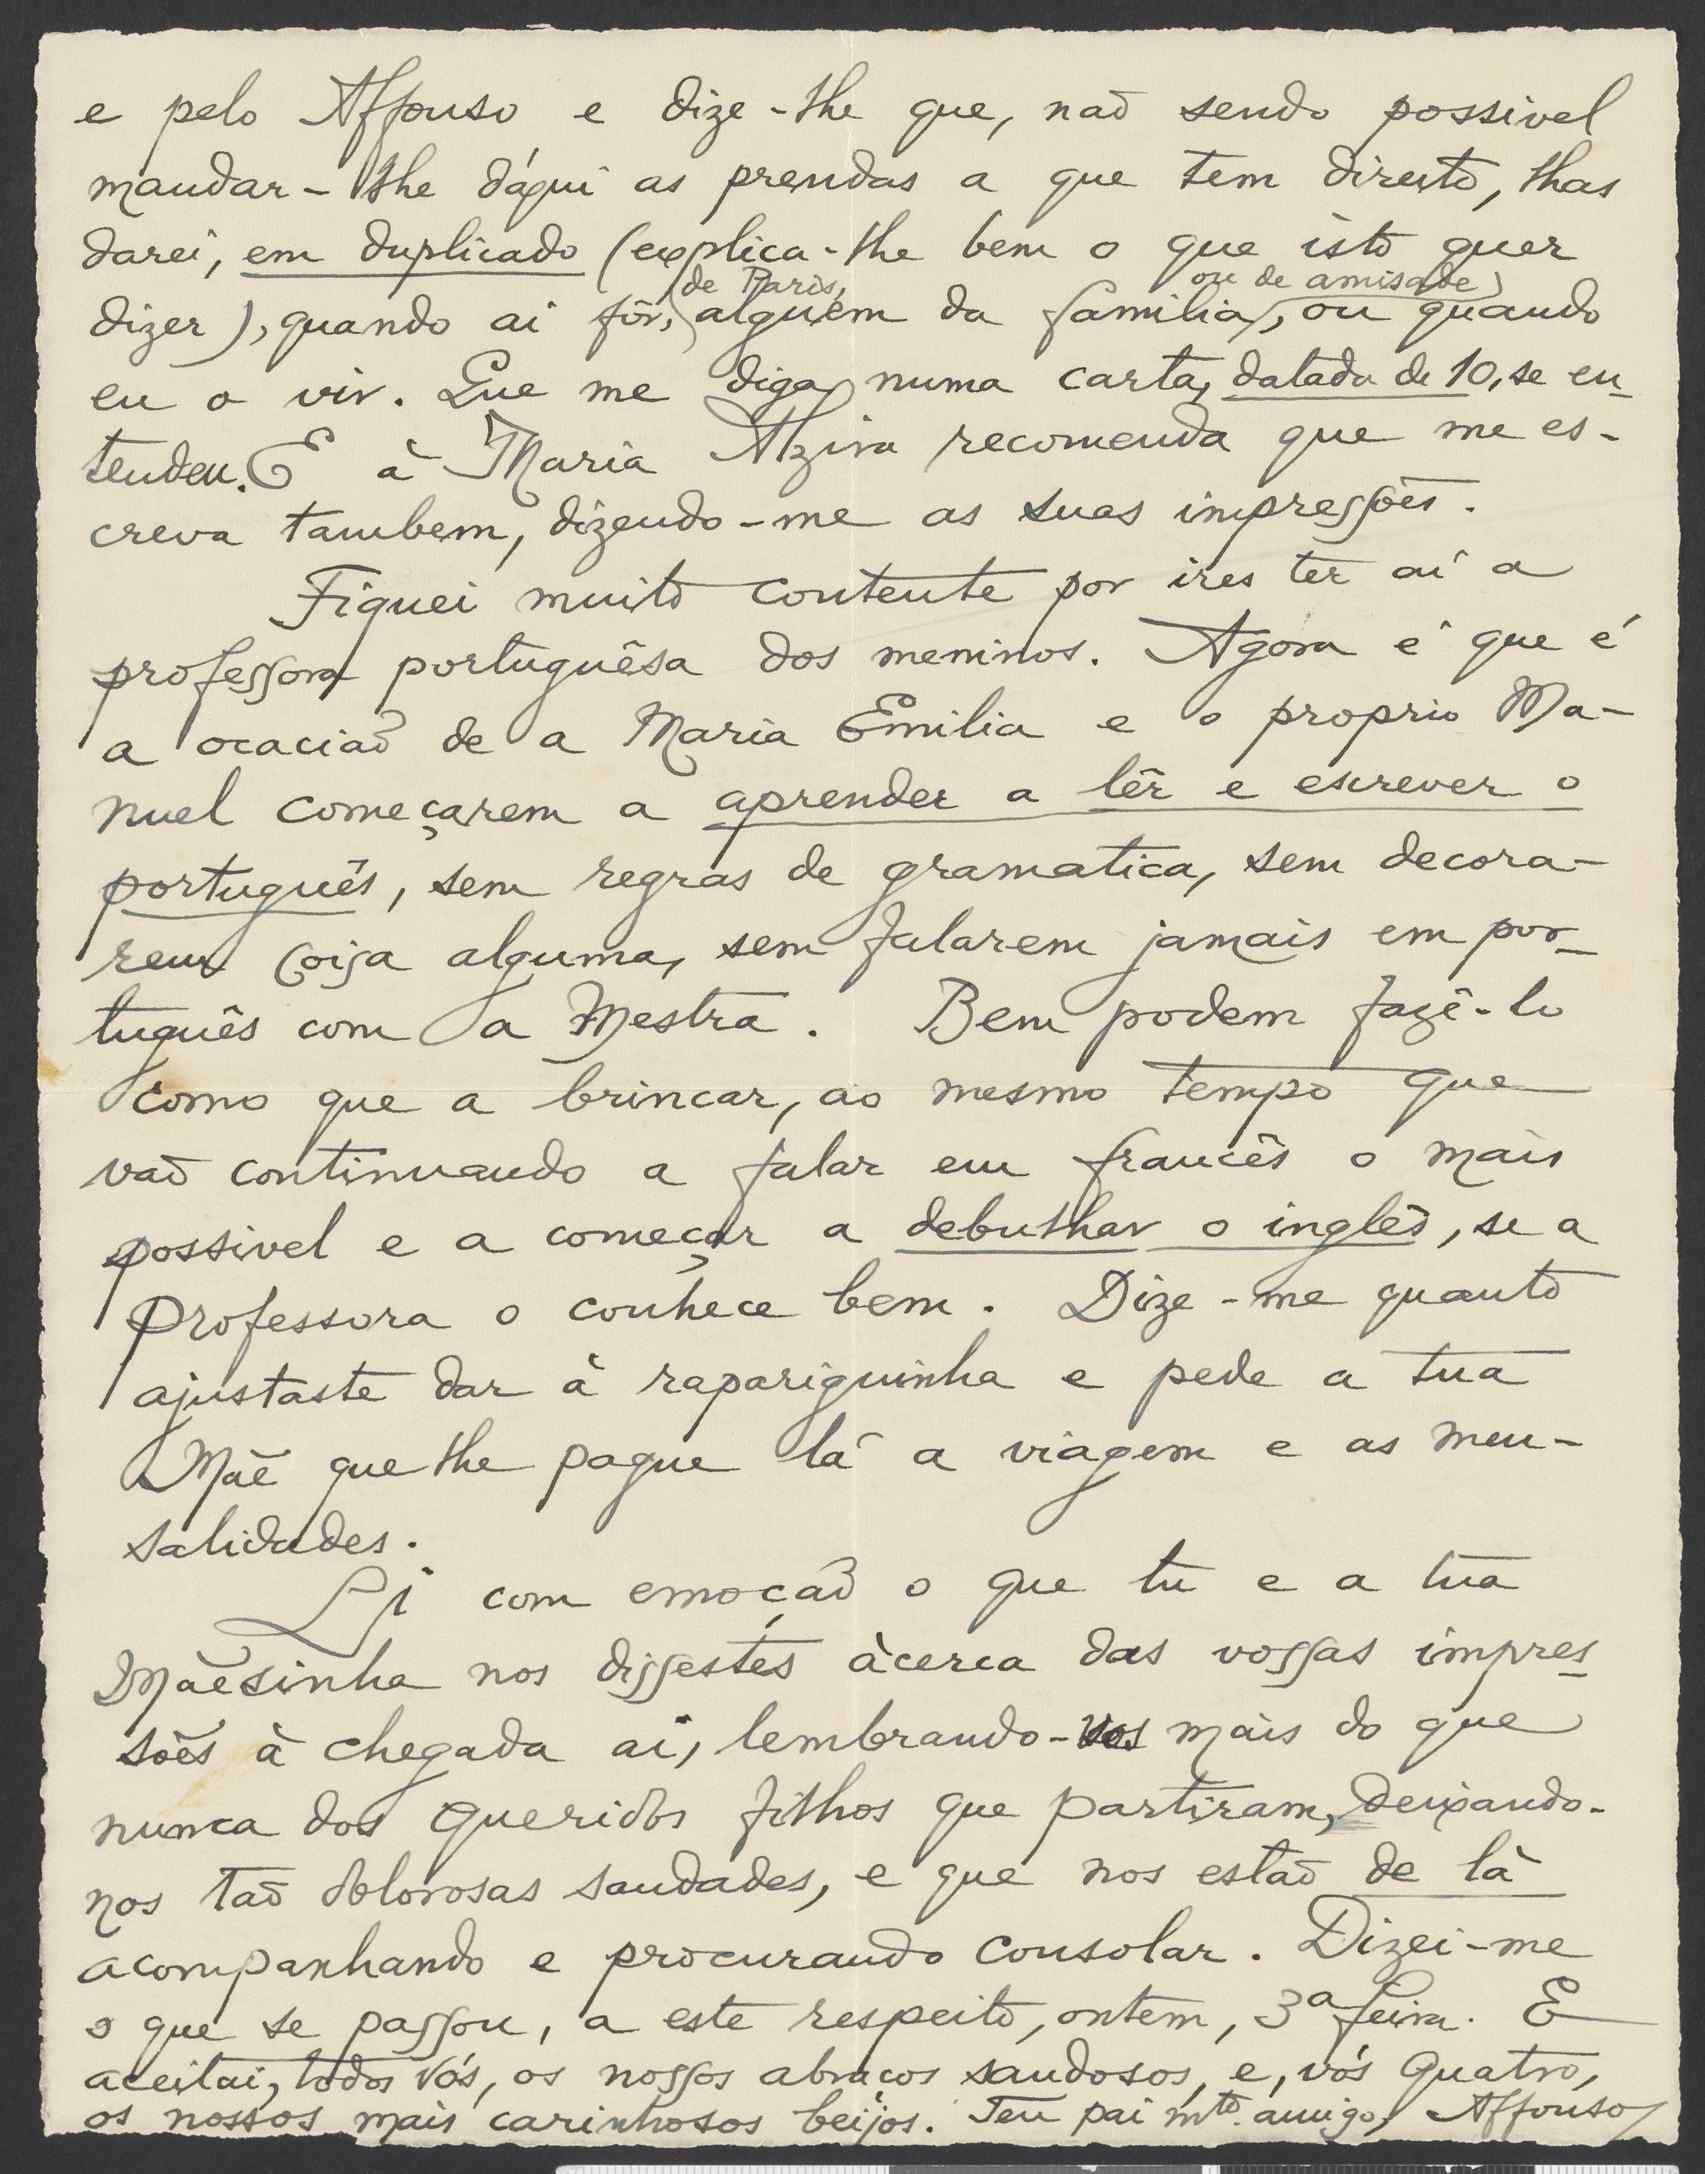 e pelo Affonso e dize-lhe que, não sendo possivel
mandar-lhe dáqui as prendas a que tem direito, lhas
darei, em duplicado (explica-lhe bem o que isto quer
de Paris, ou de amisade)
dizer), quando ai fôr, alguem da familia, ou quando
eu o vir. Que me diga, numa carta, datada de 10, se en-
tendeu. E à Maria Alzira recomenda que me es-
creva tambem, dizendo-me as suas impressões.
Fiquei muito contente por ires ter aí a
professora portuguêsa dos meninos. Agora é que é
a ocacião de a Maria Emilia e o proprio Ma-
nuel começarem a aprender a lêr e escrever o
português, sem regras de gramatica, sem decora-
rem coisa alguma, sem falarem jamais em por-
tuguês com a Mestra. Bem podem fazê-lo
como que a brincar, ao mesmo tempo que
vão continuando a falar em francês o mais
possivel e a começar a debulhar o inglês, se a
Professora o conhece bem. Dize-me quanto
ajustaste dar à rapariguinha e pede a tua
Mãe que lhe pague lá a viagem e as men-
salidades.
Li com emoção o que tu e a tua
Mãesinha nos dissestes àcerca das vossas impres-
sões à chegada aí, lembrando-vos mais do que
nunca dos queridos filhos que partiram, deixando-
nos tão dolorosas saudades, e que nos estão de lá
acompanhando e procurando consolar. Dizei-me
o que se passou, a este respeito, ontem, 3ª feira. E
aceitai, todos vós, os nossos abraços saudosos, e, vós quatro,
os nossos mais carinhosos beijos. Teu pai mto. amigo, Affonso